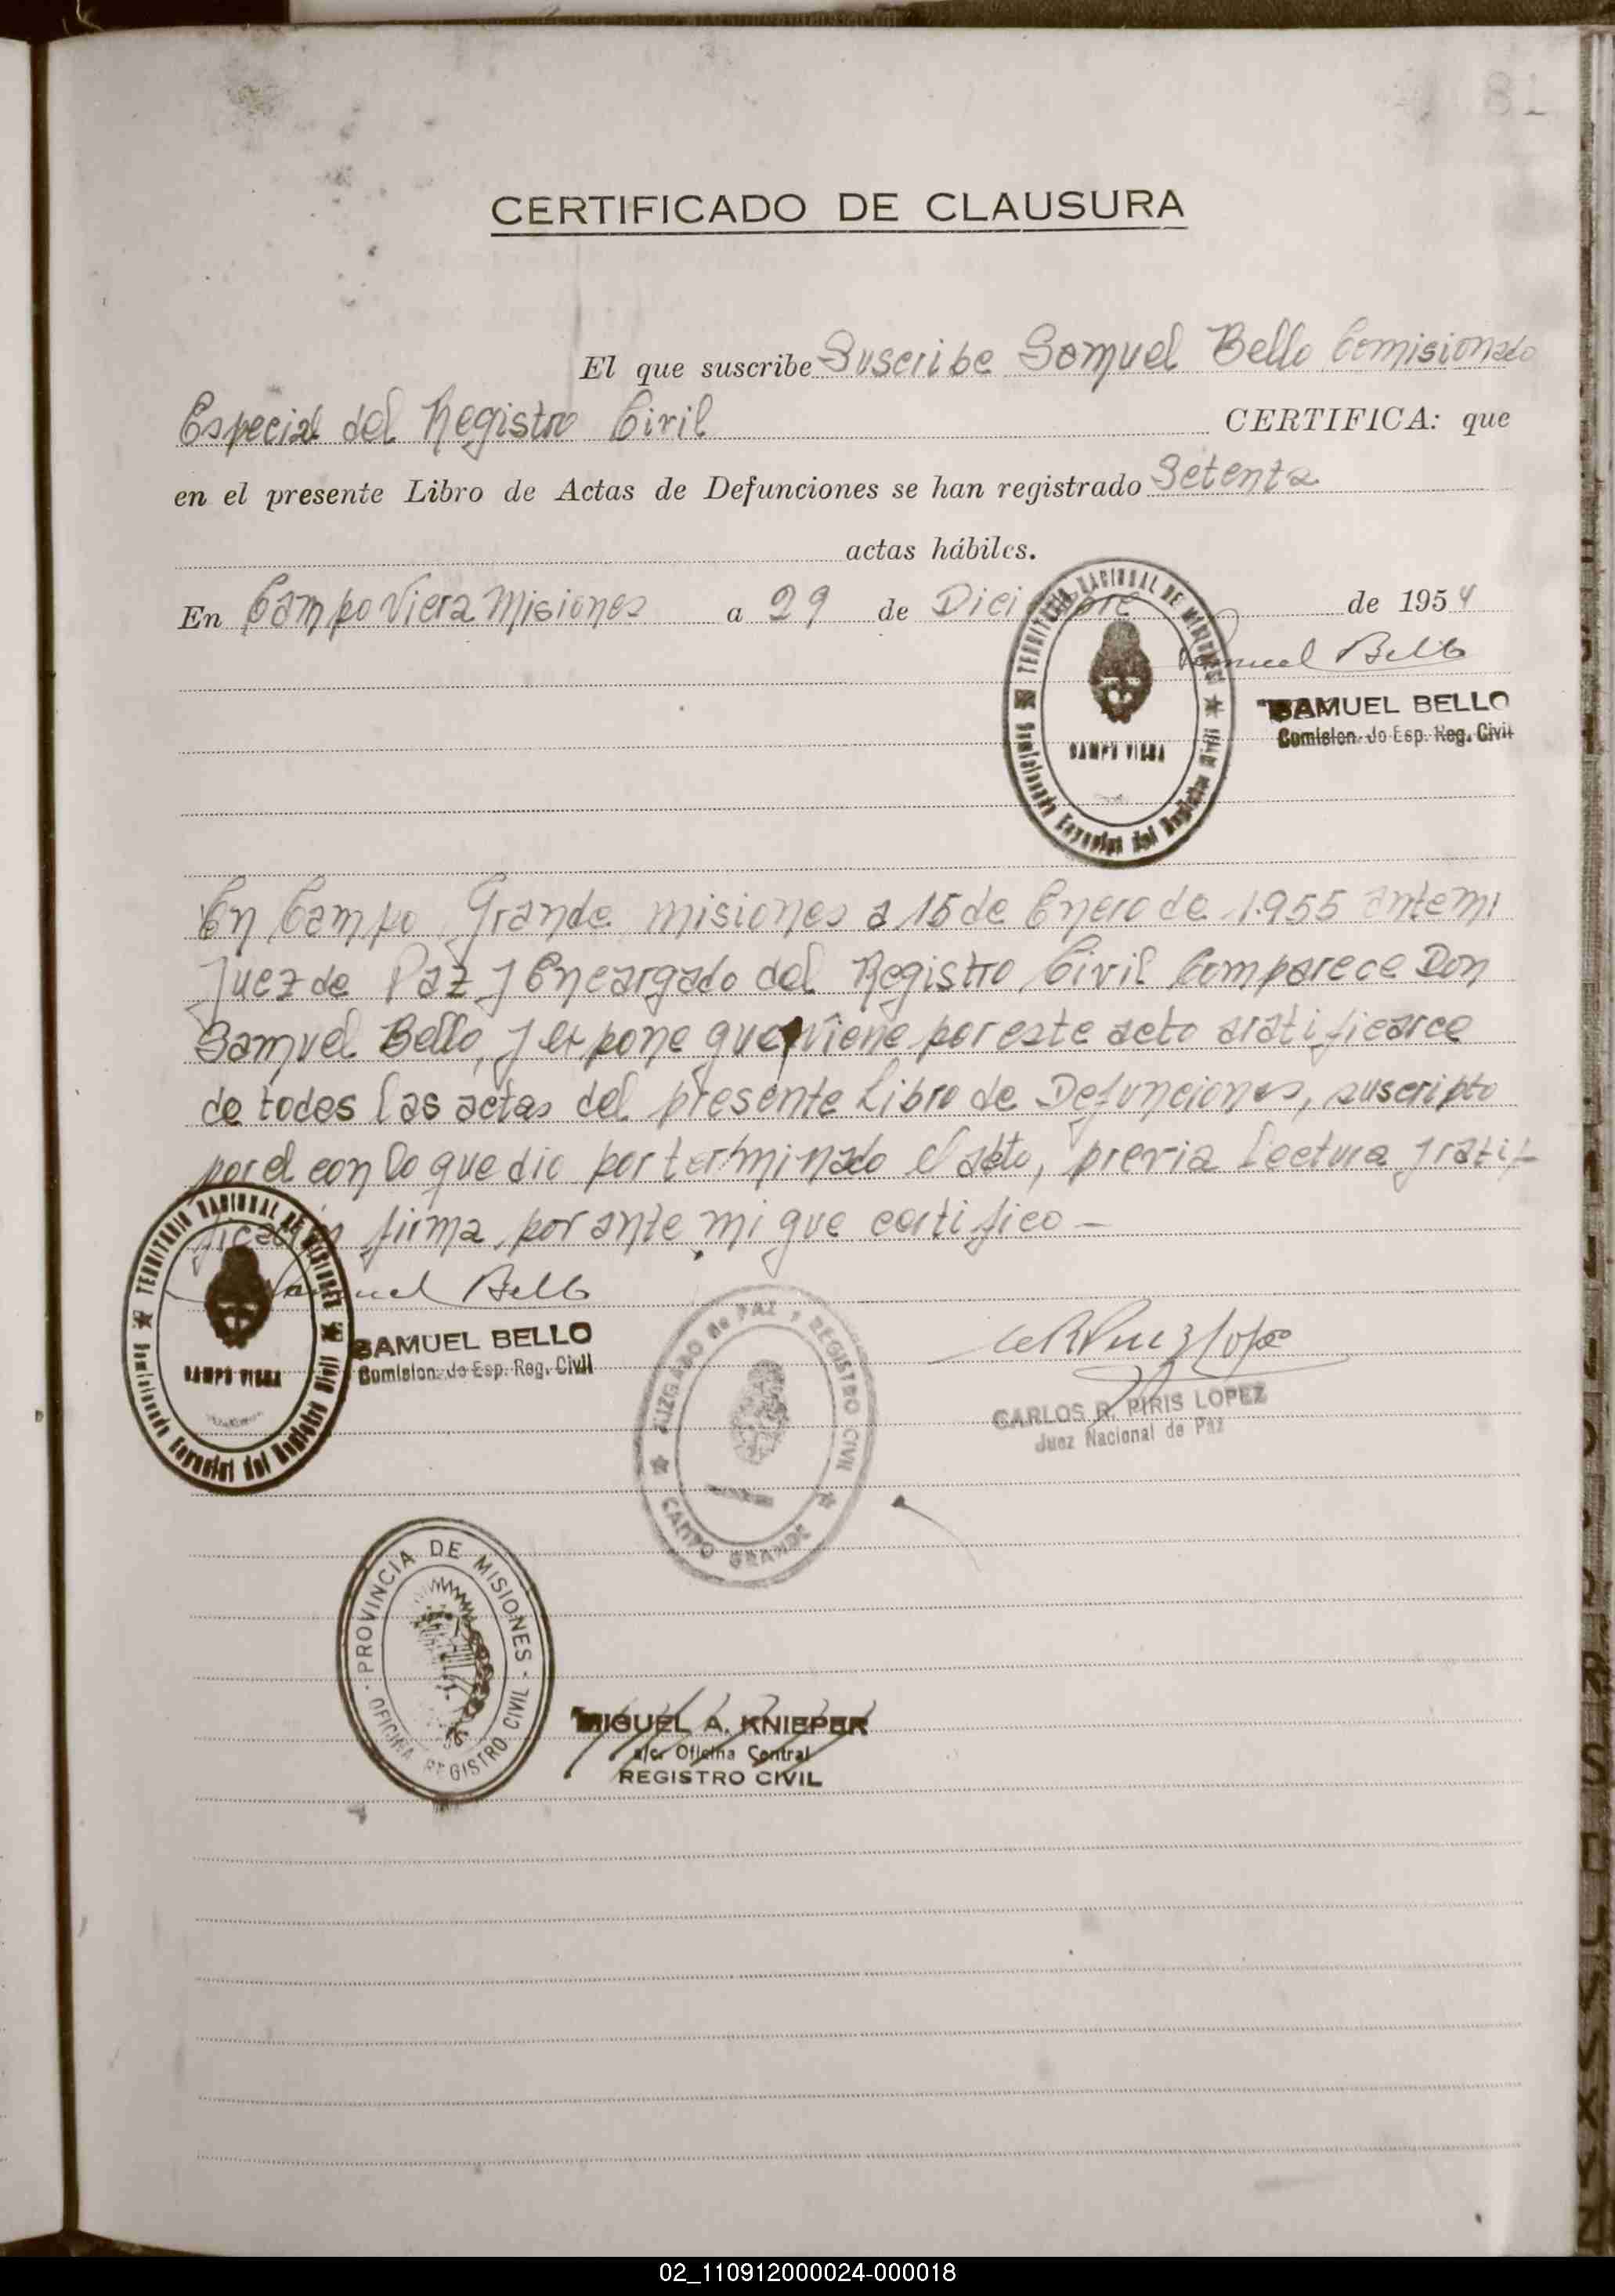 81
CERTIFICADO DE CLAUSURA
El que suscribe Suscribe Samuel Bello Comisionado
Especial del Registro Civil CERTIFICA: que
en el presente Libro de Actas de Defunciones se han registrado Setenta
actas hábiles.
En Campo Viera Misiones a 29 de Diciembre de 1954
Samuel Bello
SAMUEL BELLO
Comision. do Esp. Reg. Civil
TERRITORIO NACIONAL DE MISIONES
CAMPO VIERA
Comisionado Especial del Registro Civil
En Campo Grande misiones a 15 de Enero de 1.955 ante mi
Juez de Paz y Encargado del Registro Civil Comparece Don
Samuel Bello, y expone que viene por este acto aratificarce
de todes las actas del presente Libro de Defunciones, suscripto
por el con lo que dio por terminado el acto, previa Lectura y ratif-
icación firma por ante mi que certifico -
Samuel Bello
SAMUEL BELLO
Comision. do Esp. Reg. Civil
TERRITORIO NACIONAL DE MISIONES
CAMPO VIERA
Comisionado Especial del Registro Civil
JUZGADO de PAZ y REGISTRO CIVIL
CAMPO GRANDE
CARLOS R. PIRIS LOPEZ
Juez Nacional de Paz
PROVINCIA DE MISIONES
OFICINA REGISTRO CIVIL
MIGUEL A. KNIEPER
a/c. Oficina Central
REGISTRO CIVIL
02_110912000024-000018